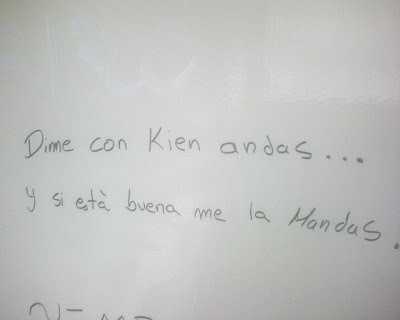 Dime con Kien andas...
Y si està buena me la Mandas.